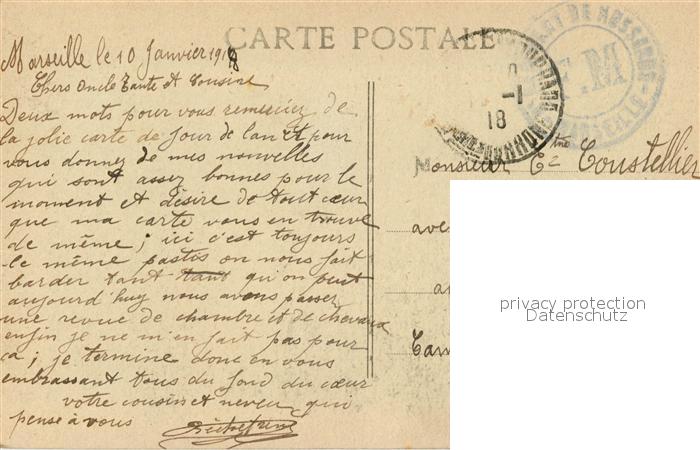 CARTE POSTALE
Marseille le 10 Janvier 1918
Chers Oncle Tante et Cousine
Deux mots pour vous remerciez de
la jolie carte de Jour de lan et pour
vous donnez de mes nouvelles
qui sont assez bonnes pour le
moment et désire de tout cœur
que ma carte vous en trouve
de même ; ici c'est toujours
le même pastis on nous fait
barder tant tant qu'on peut
aujourd'huy nous avons passer
une revue de chambre et de chevaux
enfin je ne m'en fait pas pour
ça ; je termine donc en vous
embrassant tous du fond du cœur
votre cousin et neveu qui
pense à vous
-1
18
F.M
Monsieur Coustellier
privacy protection
Datenschutz